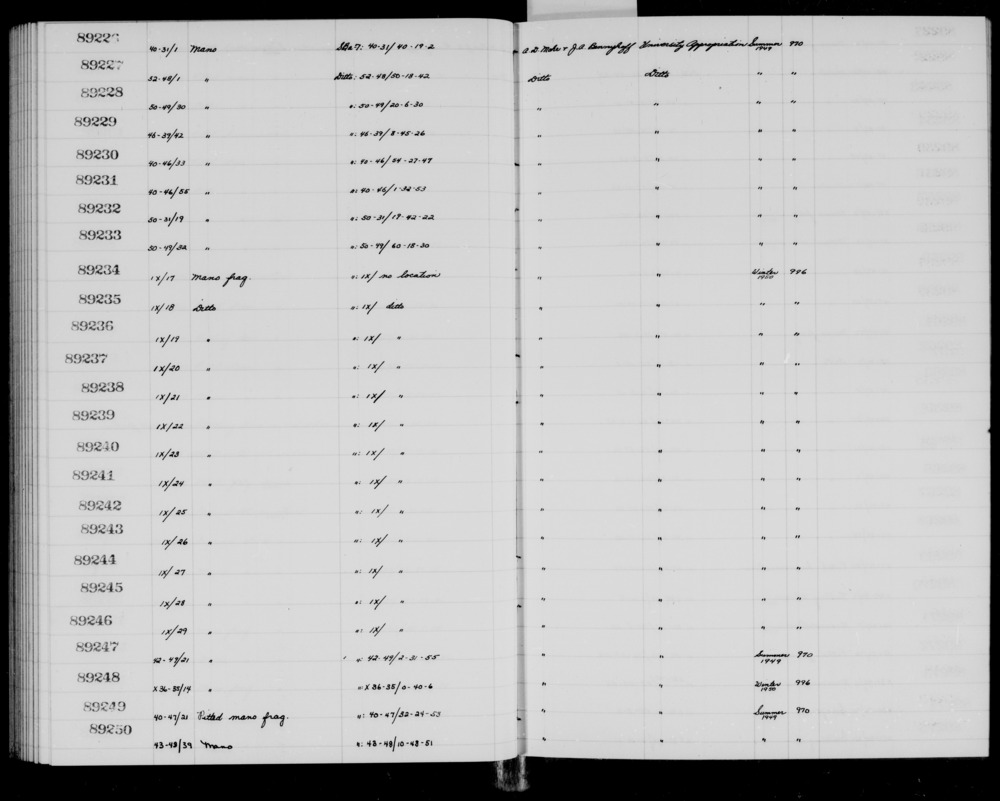 89226 40-31/1 Mano SBa 7: 40-31/40-19-2 A. D. Mohr & J. A. Bennyhoff University Appropriation Summer 1949 970
89227 52-48/1 " Ditto: 52-48/50-18-42 Ditto Ditto " "
89228 50-49/30 " ": 50-49/20-6-30 " " " "
89229 46-39/42 " ": 46-39/8-45-26 " " " "
89230 40-46/33 " ": 40-46/54-27-47 " " " "
89231 40-46/55 " ": 40-46/1-32-53 " " " "
89232 50-31/19 " ": 50-31/19-42-22 " " " "
89233 50-49/32 " ": 50-49/60-18-30 " " " "
89234 1X/17 Mano frag. ": 1X/ no location " " Winter 1950 996
89235 1X/18 Ditto ": 1X/ ditto " " " "
89236 1X/19 " ": 1X/ " " " " "
89237 1X/20 " ": 1X/ " " " " "
89238 1X/21 " ": 1X/ " " " " "
89239 1X/22 " ": 1X/ " " " " "
89240 1X/23 " ": 1X/ " " " " "
89241 1X/24 " ": 1X/ " " " " "
89242 1X/25 " ": 1X/ " " " " "
89243 1X/26 " ": 1X/ " " " " "
89244 1X/27 " ": 1X/ " " " " "
89245 1X/28 " ": 1X/ " " " " "
89246 1X/29 " ": 1X/ " " " " "
89247 42-49/21 " ": 42-49/2-31-55 " " Summer 1949 970
89248 X36-35/14 " ": X36-35/0-40-6 " " Winter 1950 996
89249 40-47/21 Pitted mano frag. ": 40-47/32-24-53 " " Summer 1949 970
89250 43-48/39 Mano ": 43-48/10-48-51 " " " "